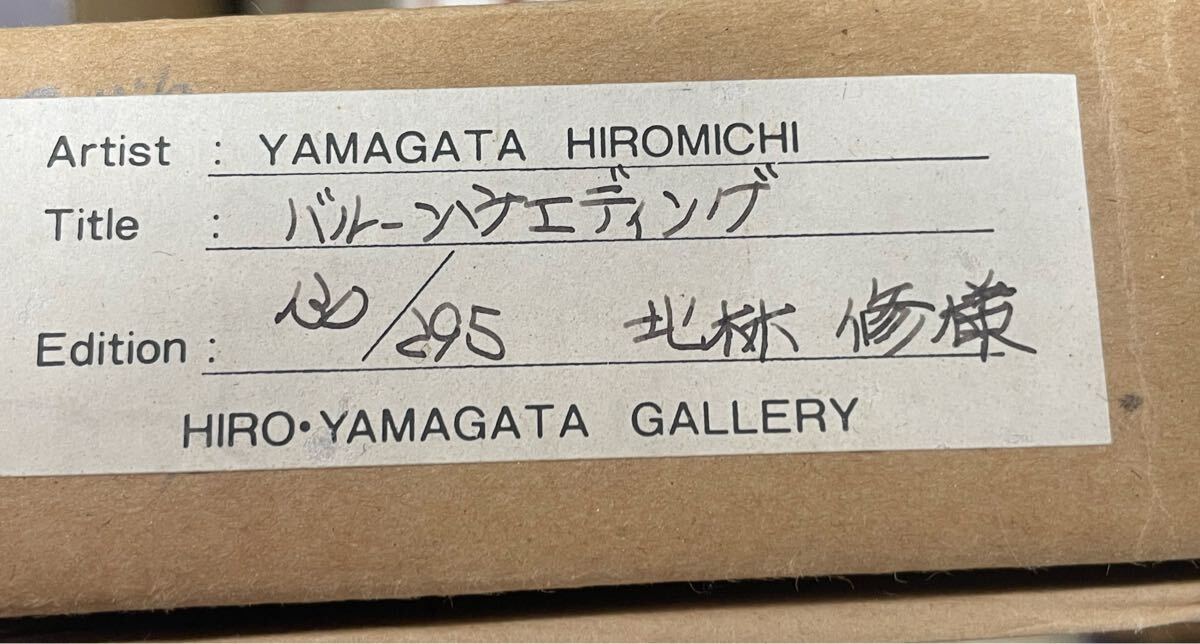 Artist : YAMAGATA HIROMICHI
Title : バルーンウエディング
Edition : 130/295 北林 修様
HIRO・YAMAGATA GALLERY